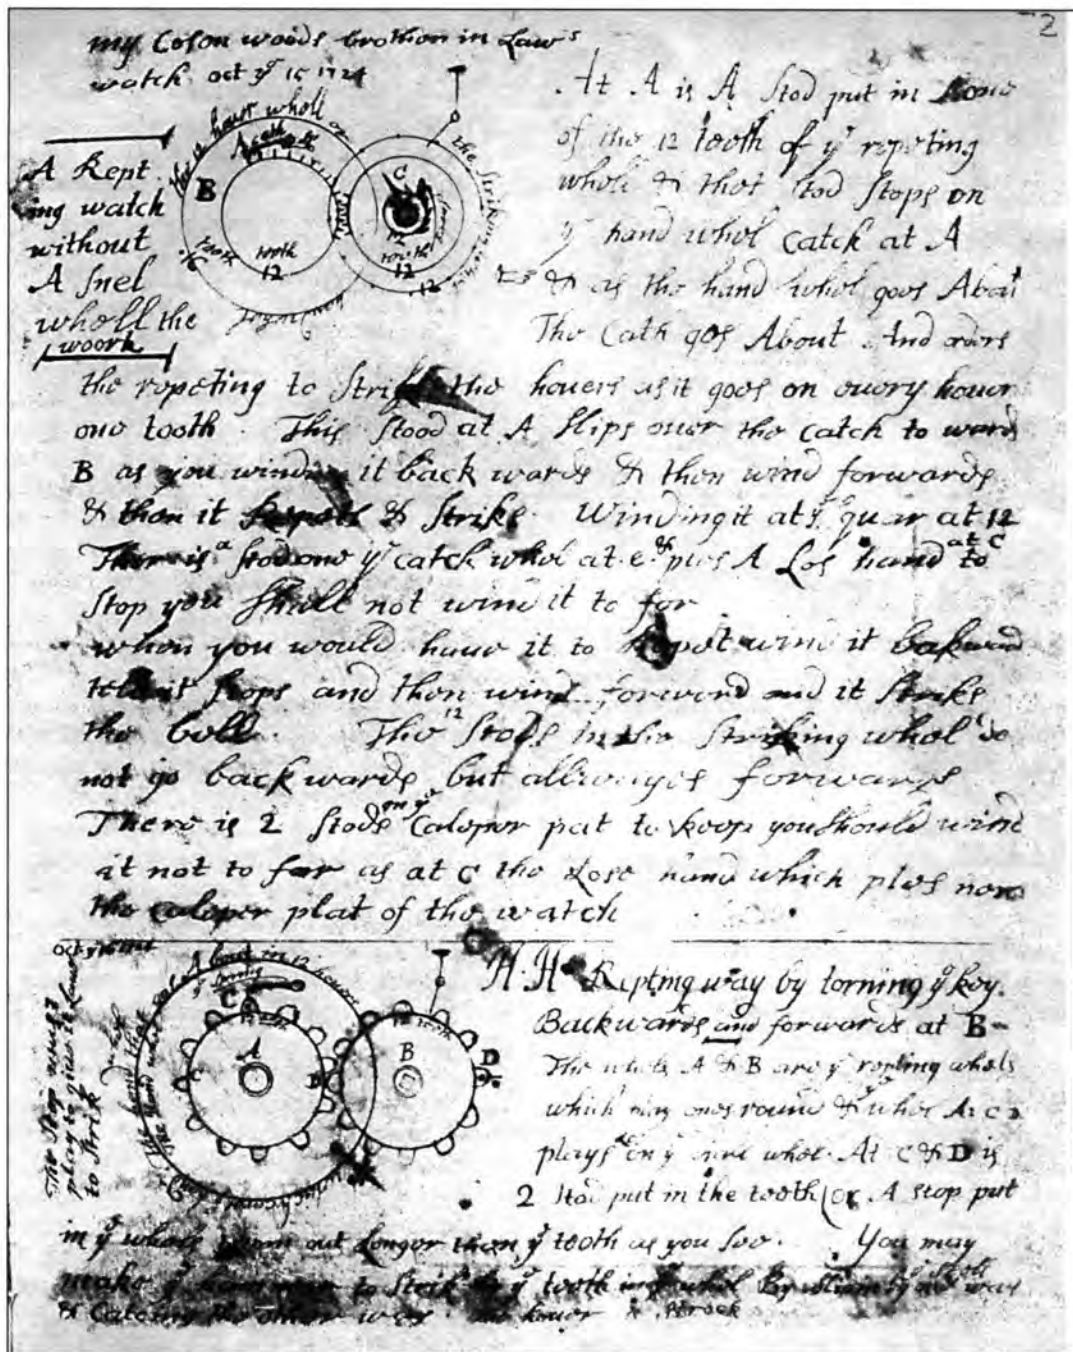 2
my Coson woods brothor in Laws
watch oct ye 15 1724
A Rept
ing watch
without
A snel
wholl the
woork
the 12 hour wholl
A Cath
B
C
tooth
12
12
tooth
12
the striking
At A is A stod put in
of the 12 tooth of ye ropeting
wholl & thot stod stops on
ye hand whol Catch at A
& as the hand whol goos About
The Cath gos About And orders
the ropeting to strike the houers as it goos on ouery houer
ono tooth. This stood at A slips ouer the Catch to wards
B as you wind it back wards & then wind forwards
& thon it Repets & strike. Winding it at ye quar at 12
Ther is a stod one ye catch whol at e & ples A Los hand at C to
stop you shall not wind it to for
whon you would haue it to Repet wind it bakward
it stops and then wind forword and it strike
the boll. The 12 stods in the striking whol do
not go back wards but allwayes forwards
There is 2 stods on ye Caloper pat to keep you should wind
it not to far as at C the Lose hand which ples non
the Caloper plat of the watch
The Stop
play to giue it Leaue
to Strik
About in 12 houers
C
A
C
D
B
D
H. H Repting way by torning ye key.
Backwards and forwards at B
The whols A & B are ye ropting whols
which may ones round & ye whol A
plays on ye whol. At C & D is
2 stod put in the tooth or A stop put
in ye whols them out Longor than ye tooth as you soo. You may
make ye hammer to strik by ye tooth in ye whol By
& Catching the other way houer strock